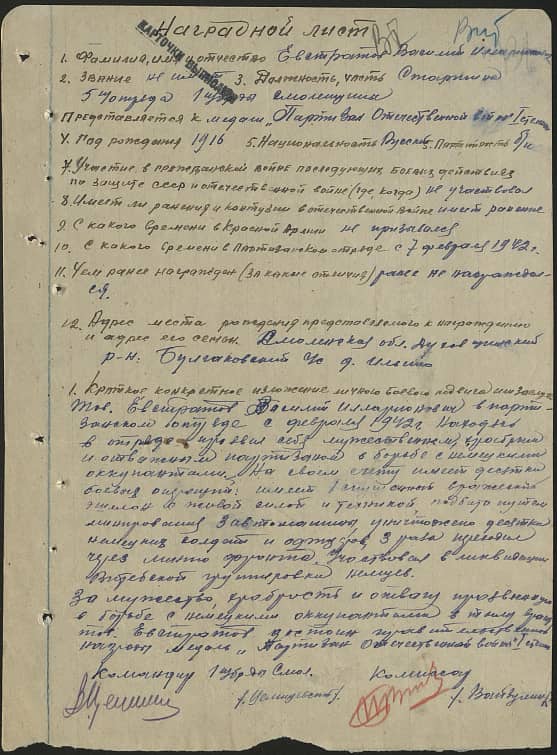 Наградной лист
КАРТОЧКА ВЫПИСАНА
1. Фамилия, имя и отчество Евстратов Василий Илларионович
2. Звание не имеет 3. Должность, часть Старшина
5 отряда 1 Смоленщины
Представляется к медали „Партизан Отечественной войны" I степени
4. Год рождения 1916 5. Национальность Русский 6. Партийность б/п
7. Участие в гражданской войне последующих боевых действиях
по защите СССР и отечественной войне (где, когда) не участвовал
8. Имеет ли ранения и контузии в отечественной войне имеет ранение
9. С какого времени в Красной Армии не призывался
10. С какого времени в Партизанском отряде с 7 февраля 1942 г.
11. Чем ранее награжден (за какие отличия) ранее не награждал-
ся.
12. Адрес места рождения представляемого к награждению
и адрес его семьи Смоленская обл. Духовщинский
р-н. Булгаковский с/с д.
1. Краткое конкретное изложение личного боевого подвига или заслуг
Тов. Евстратов Василий Илларионович в парти-
занском отряде с февраля 1942 г. Находясь
в отряде проявил себя мужественным, храбрым
и отважным партизаном в борьбе с немецкими
оккупантами. На своем счету имеет десятки
боевых операций: имеет 1 вражеский
эшелон с живой силой и техникой, подбито путем
минирования 3 автомашины, уничтожено десятки
немецких солдат и офицеров. 3 раза
через линию фронта. Участвовал в ликвидации
Витебской группировки немцев.
За мужество, храбрость и отвагу проявленную
в борьбе с немецкими оккупантами в тылу врага
тов. Евстратов достоин правительственной
награды медаль „Партизан Отечественной войны" I степени
Командир Смол. Комиссар